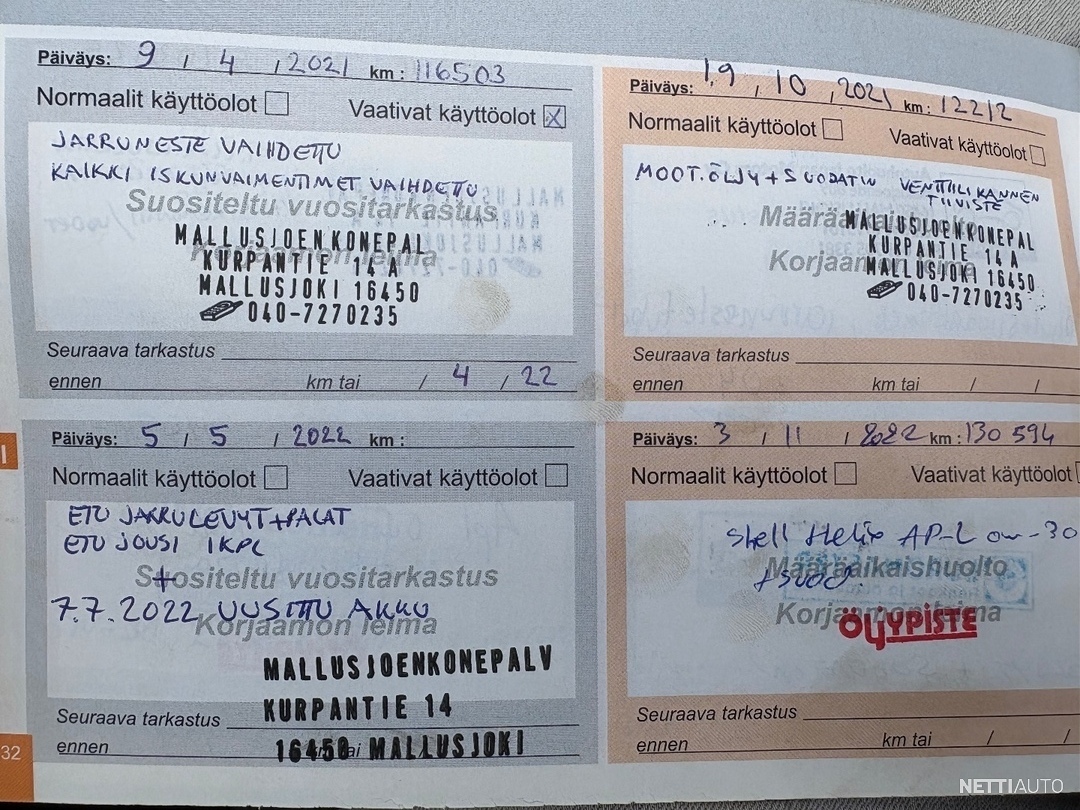 Päiväys: 9 / 4 / 2021 km : 116503
Normaalit käyttöolot Vaativat käyttöolot X
JARRUNESTE VAIHDETTU
KAIKKI ISKUNVAIMENTIMET VAIHDETTU
Suositeltu vuositarkastus
MALLUSJOENKONEPAL
KURPANTIE 14 A
MALLUSJOKI 16450
040-7270235
Seuraava tarkastus
ennen km tai / 4 / 22
Päiväys: 19 / 10 / 2021 km : 12212
Normaalit käyttöolot Vaativat käyttöolot
MOOT.ÖLJY+SUODATIN VENTTIILIKANNEN
TIIVISTE
Määräaikaishuolto
MALLUSJOENKONEPAL
KURPANTIE 14 A
MALLUSJOKI 16450
040-7270235
Seuraava tarkastus
ennen km tai / /
Päiväys: 5 / 5 / 2022 km :
Normaalit käyttöolot Vaativat käyttöolot
ETU JARRULEVYT+PALAT
ETU JOUSI 1KPL
Suositeltu vuositarkastus
+
7.7.2022 UUSITTU AKKU
Korjaamon leima
MALLUSJOENKONEPALV
KURPANTIE 14
16450 MALLUSJOKI
Seuraava tarkastus
ennen km tai
Päiväys: 3 / 11 / 2022 km : 130 594
Normaalit käyttöolot Vaativat käyttöolot
Shell Helix AP-L 0w-30
Määräaikaishuolto
+suod.
Korjaamon leima
ÖljYPISTE
Seuraava tarkastus
ennen km tai / /
32
NETTIAUTO